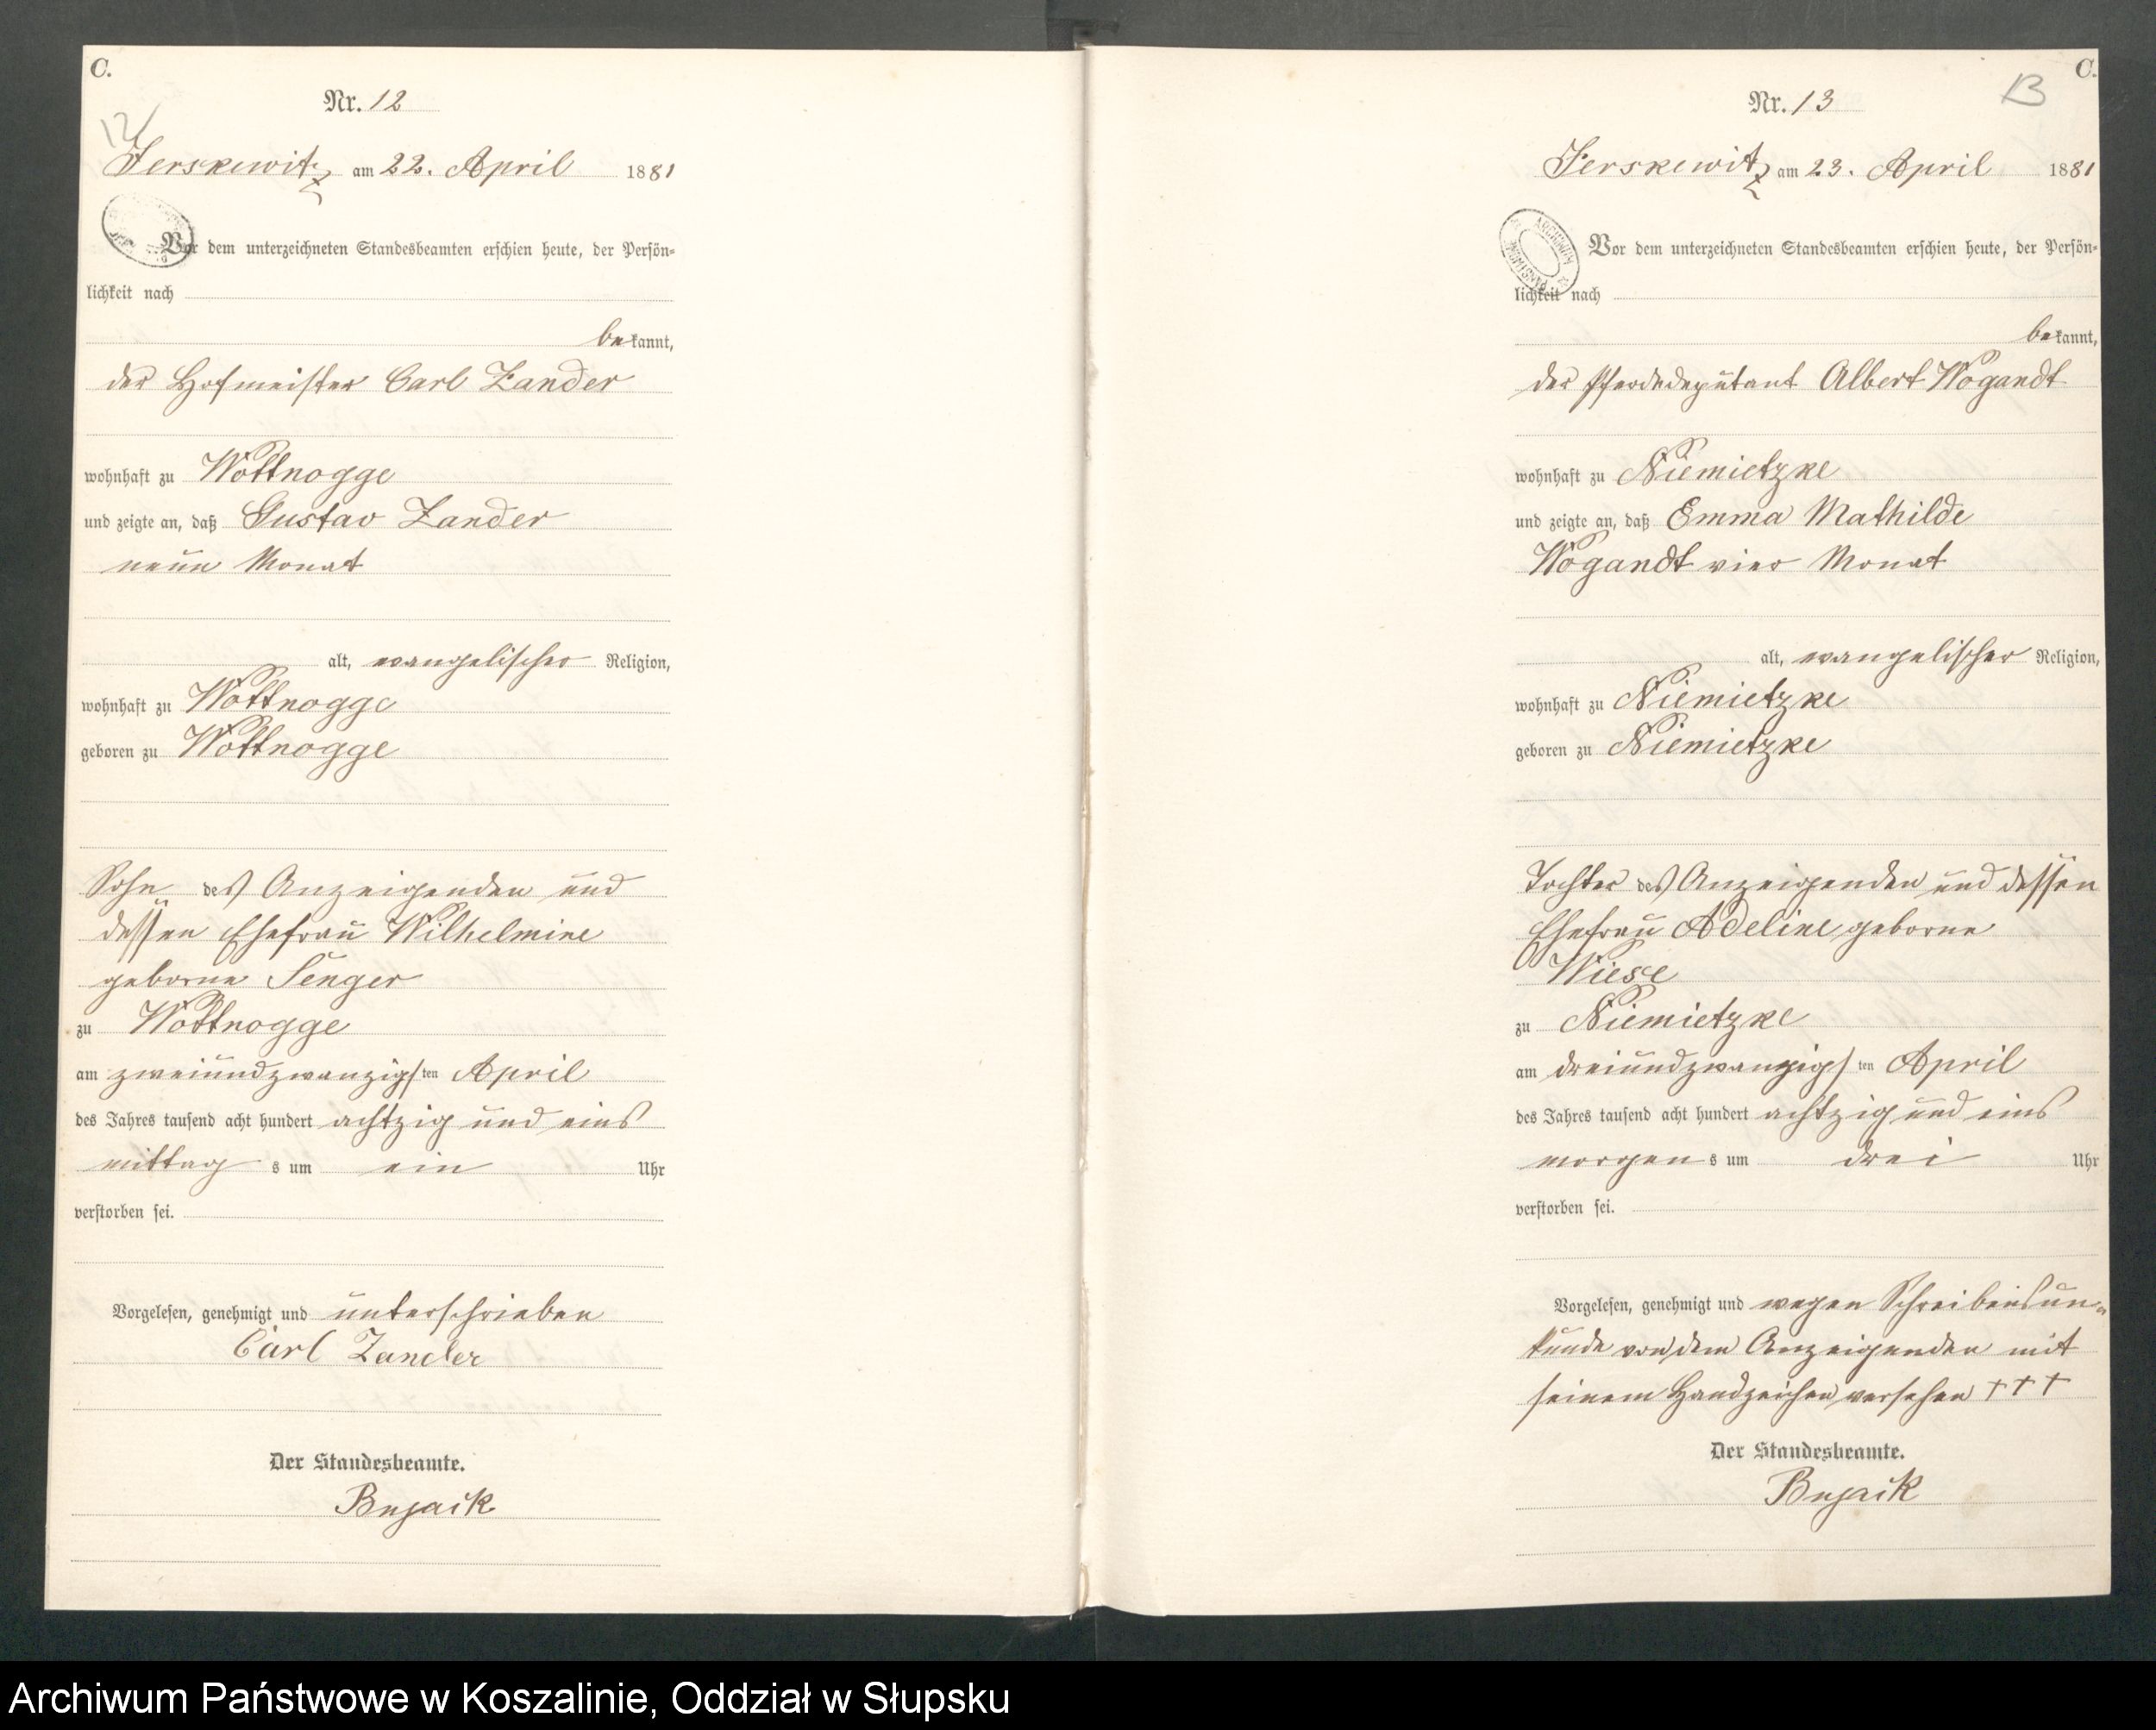 C.
Nr. 12
12
Jerskewitz am 22. April 1881
Vor dem unterzeichneten Standesbeamten erschien heute, der Persön-
lichkeit nach
bekannt,
der Hofmeister Carl Zander
wohnhaft zu Wottnogge
und zeigte an, daß Gustav Zander
neun Monat
alt, evangelischer Religion,
wohnhaft zu Wottnogge
geboren zu Wottnogge
Sohn des Anzeigenden und
dessen Ehefrau Wilhelmine
geborne Senger
zu Wottnogge
am zweiundzwanzigsten April
des Jahres tausend acht hundert achtzig und eins
mittags um ein Uhr
verstorben sei.
Vorgelesen, genehmigt und unterschrieben
Carl Zander
Der Standesbeamte.
Bujack
C.
13
Nr. 13
Jerskewitz am 23. April 1881
ARCHIWUM PAŃSTWOWE
Vor dem unterzeichneten Standesbeamten erschien heute, der Persön-
lichkeit nach
bekannt,
der Pferdedeputant Albert Wogandt
wohnhaft zu Niemietzke
und zeigte an, daß Emma Mathilde
Wogandt vier Monat
alt, evangelischer Religion,
wohnhaft zu Niemietzke
geboren zu Niemietzke
Tochter des Anzeigenden und dessen
Ehefrau Adeline geborne
Wiese
zu Niemietzke
am dreiundzwanzigsten April
des Jahres tausend acht hundert achtzig und eins
morgens um drei Uhr
verstorben sei.
Vorgelesen, genehmigt und wegen Schreibensun-
kunde von dem Anzeigenden mit
seinem Handzeichen versehen +++
Der Standesbeamte.
Bujack
Archiwum Państwowe w Koszalinie, Oddział w Słupsku